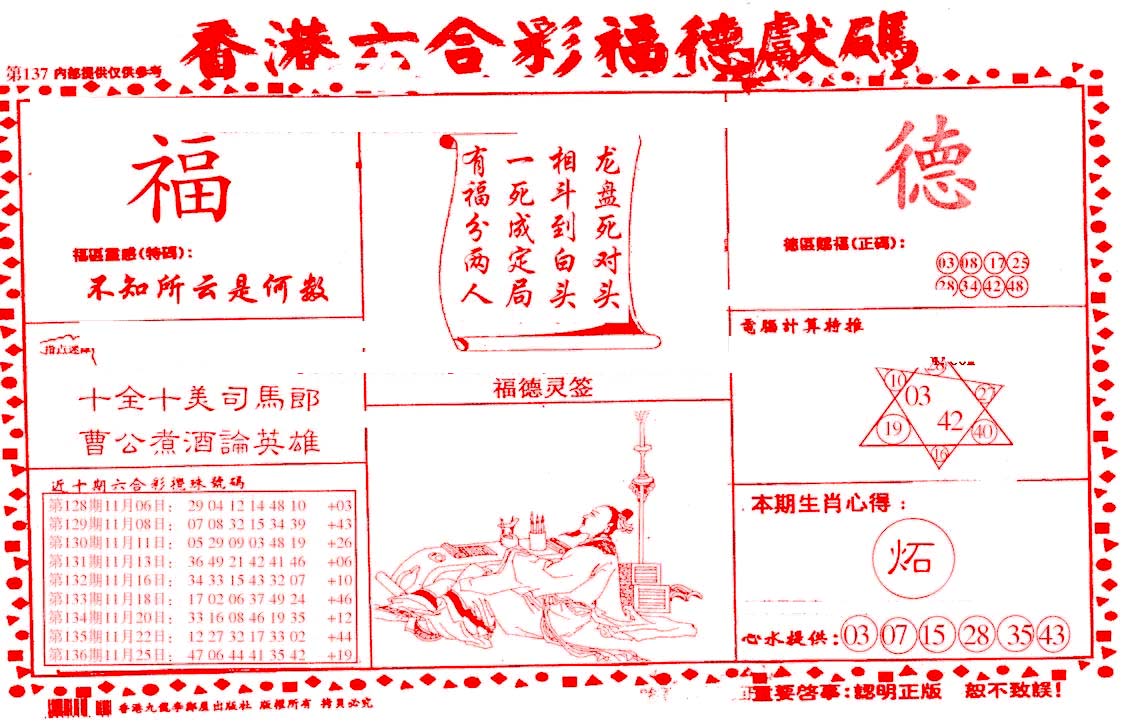 香港六合彩福德獻碼
第137 内部提供仅供参考
福
福區靈感(特碼):
不知所云是何数
龙盘死对头
相斗到白头
一死成定局
有福分两人
德
德區赐福(正碼):
03 08 17 25
28 34 42 48
電腦計算特推
10 03 27
19 42 40
16
十全十美司馬郎
曹公煮酒論英雄
福德灵签
近十期六合彩攪珠號碼
第128期11月06日: 29 04 12 14 48 10 +03
第129期11月08日: 07 08 32 15 34 39 +43
第130期11月11日: 05 29 09 03 48 19 +26
第131期11月13日: 36 49 21 42 41 46 +06
第132期11月16日: 34 33 15 43 32 07 +10
第133期11月18日: 17 02 06 37 49 24 +46
第134期11月20日: 33 16 08 46 19 35 +12
第135期11月22日: 12 27 32 17 33 02 +44
第136期11月25日: 47 06 44 41 35 42 +19
本期生肖心得:
炻
心水提供: 03 07 15 28 35 43
重要啓事:認明正版 恕不致誤!
香港九龍李鄭屋出版社 版權所有 拷貝必究